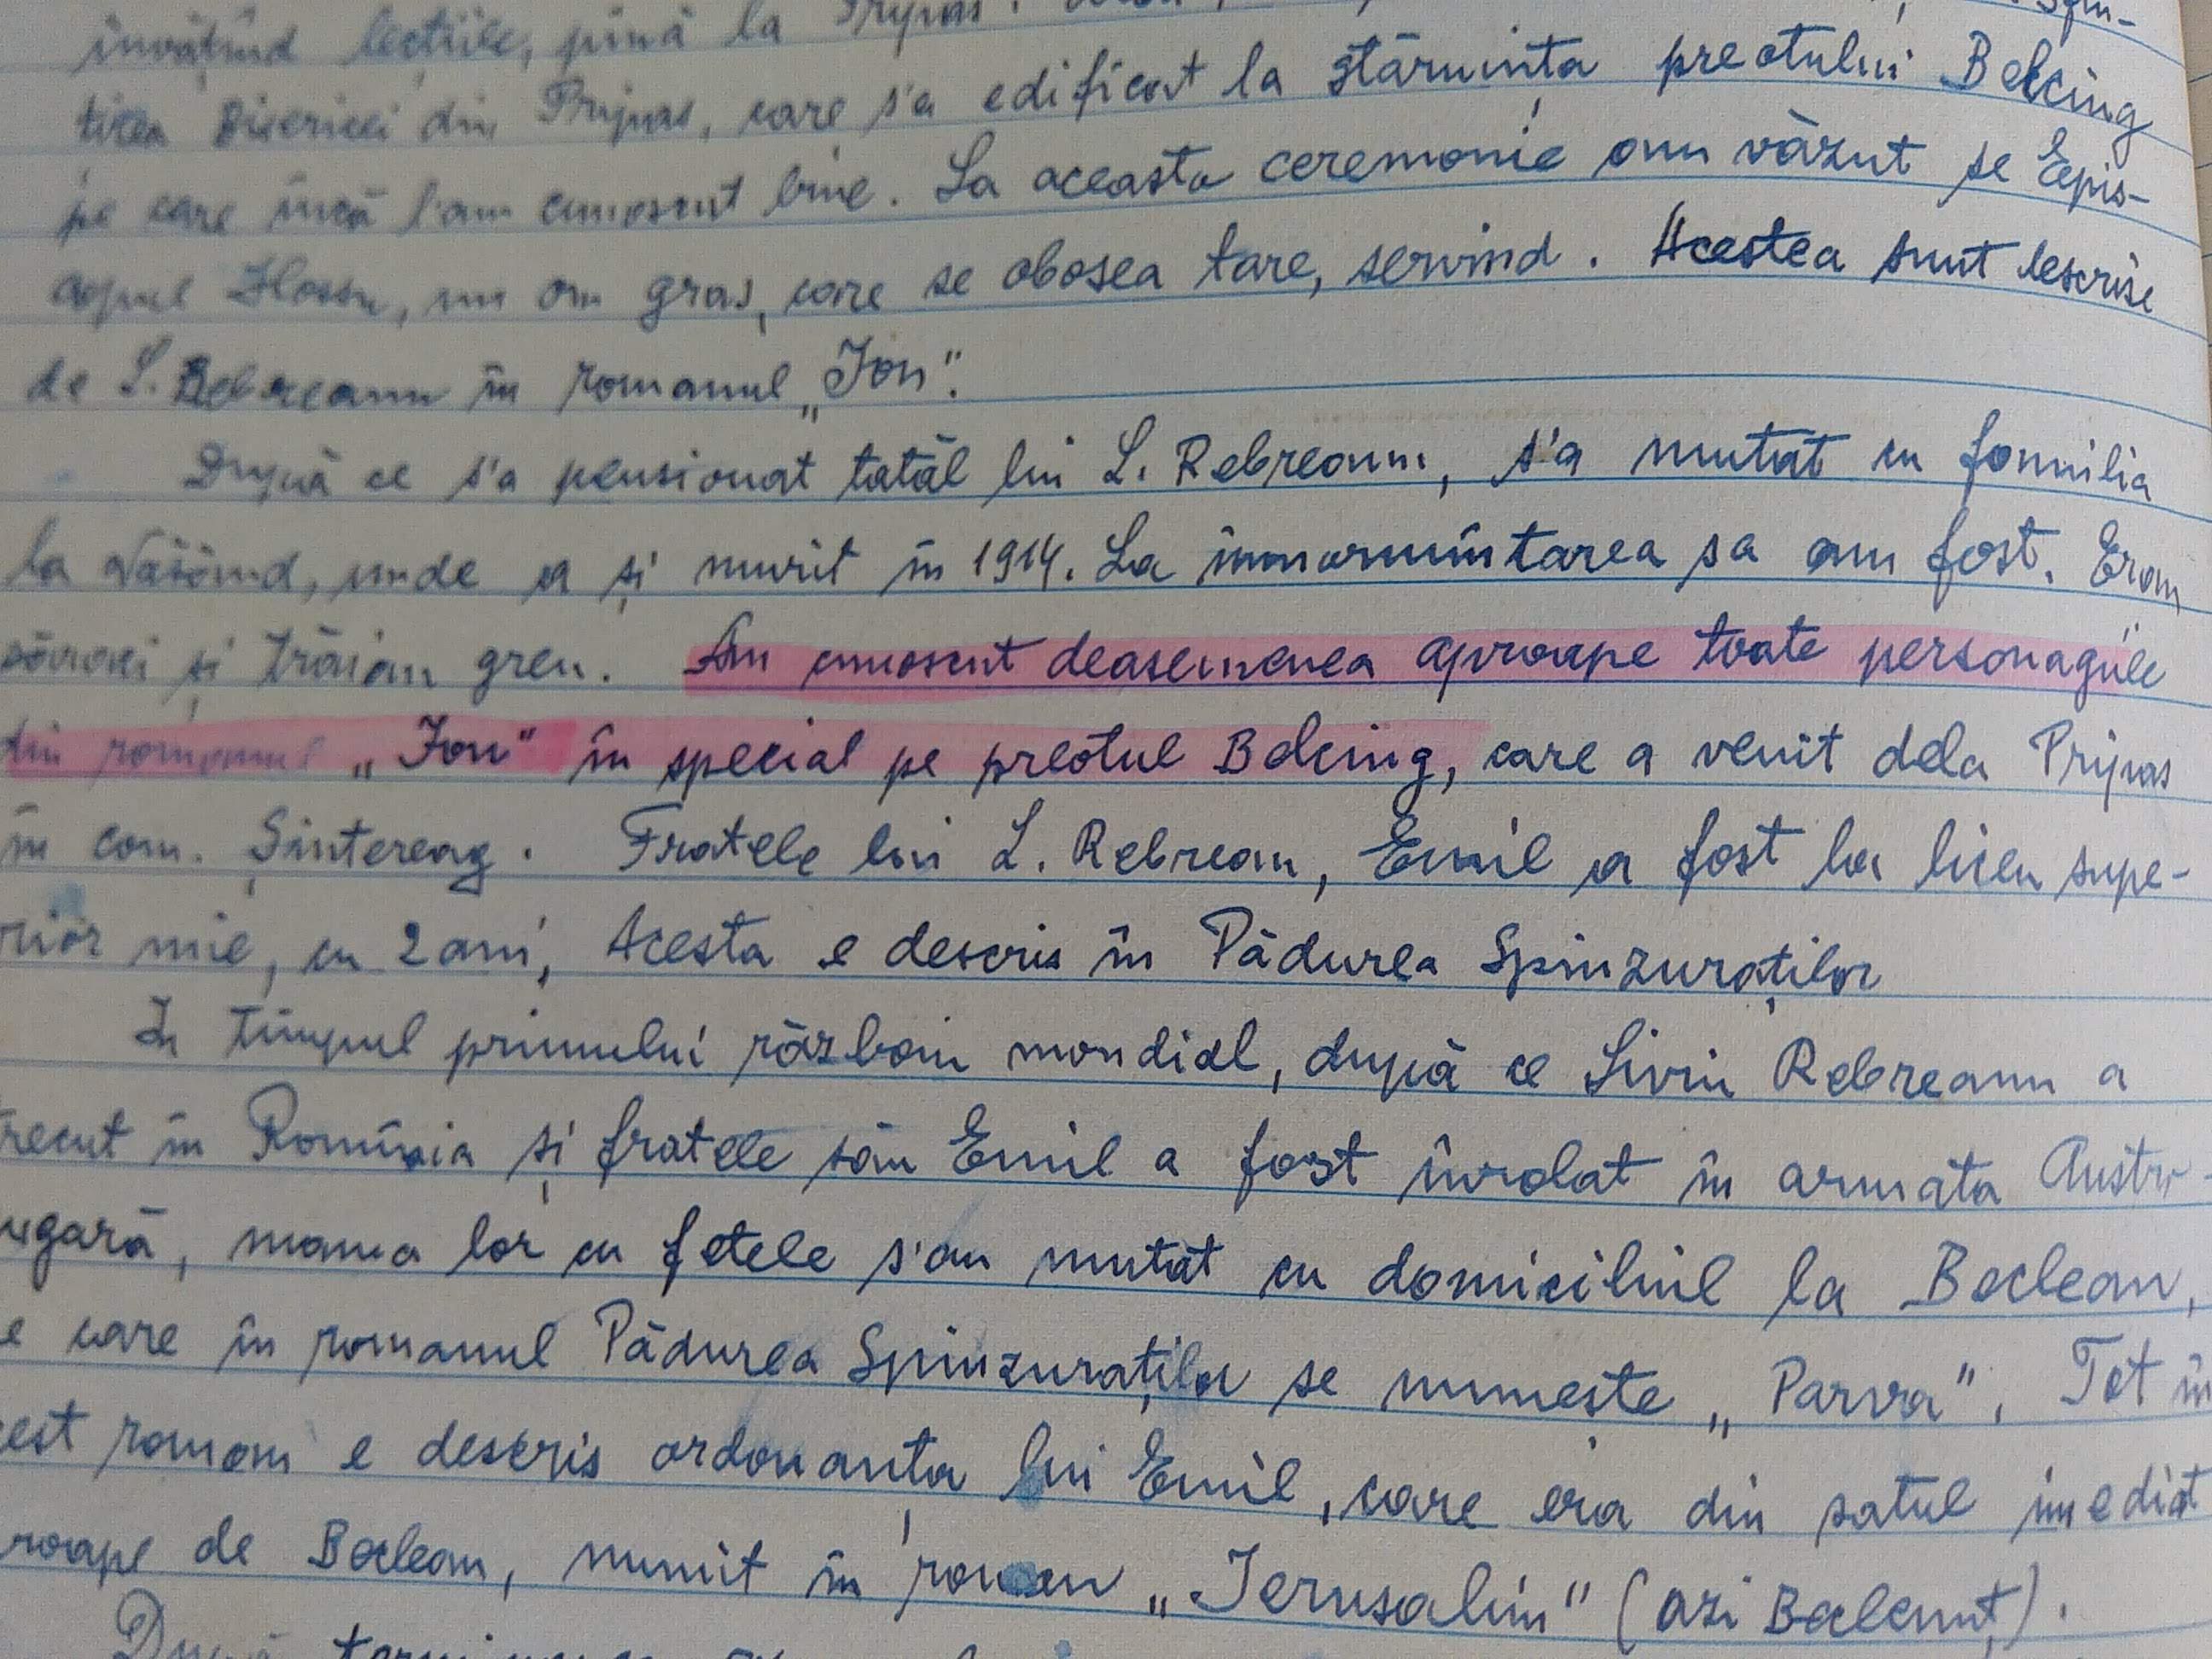 învățînd lecțiile, pînă la Pripas.
țirea Bisericei din Pripas, care s'a edificat la stăruința preotului Belcing
pe care încă l'am cunoscut bine. La aceasta ceremonie am văzut pe Epis-
copul Hossu, un om gras, care se obosea tare, servind. Acestea sunt descrise
de L. Rebreanu în romanul „Ion".
După ce s'a pensionat tatăl lui L. Rebreanu, s'a mutat cu familia
la Năsăud, unde a și murit în 1914. La înmormîntarea sa am fost. Erau
săraci și trăiau greu. Am cunoscut deasemenea aproape toate personagiile
din romanul „Ion" în special pe preotul Belcing, care a venit dela Pripas
în com. Șintereag. Fratele lui L. Rebrean, Emil a fost la liceu supe-
rior mie, cu 2 ani, Acesta e descris în Pădurea Spinzuraților
In timpul primului război mondial, după ce Liviu Rebreanu a
trecut în Romînia și fratele său Emil a fost înrolat în armata Austro-
ugară, mama lor cu fetele s'au mutat cu domiciliul la Beclean,
e care în romanul Pădurea Spinzuraților se numește „Parva". Tot în
cest roman e descris ordonanța lui Emil, care era din satul imediat
roape de Beclean, numit în roman „Ierusalim" (azi Beclenuț).
După